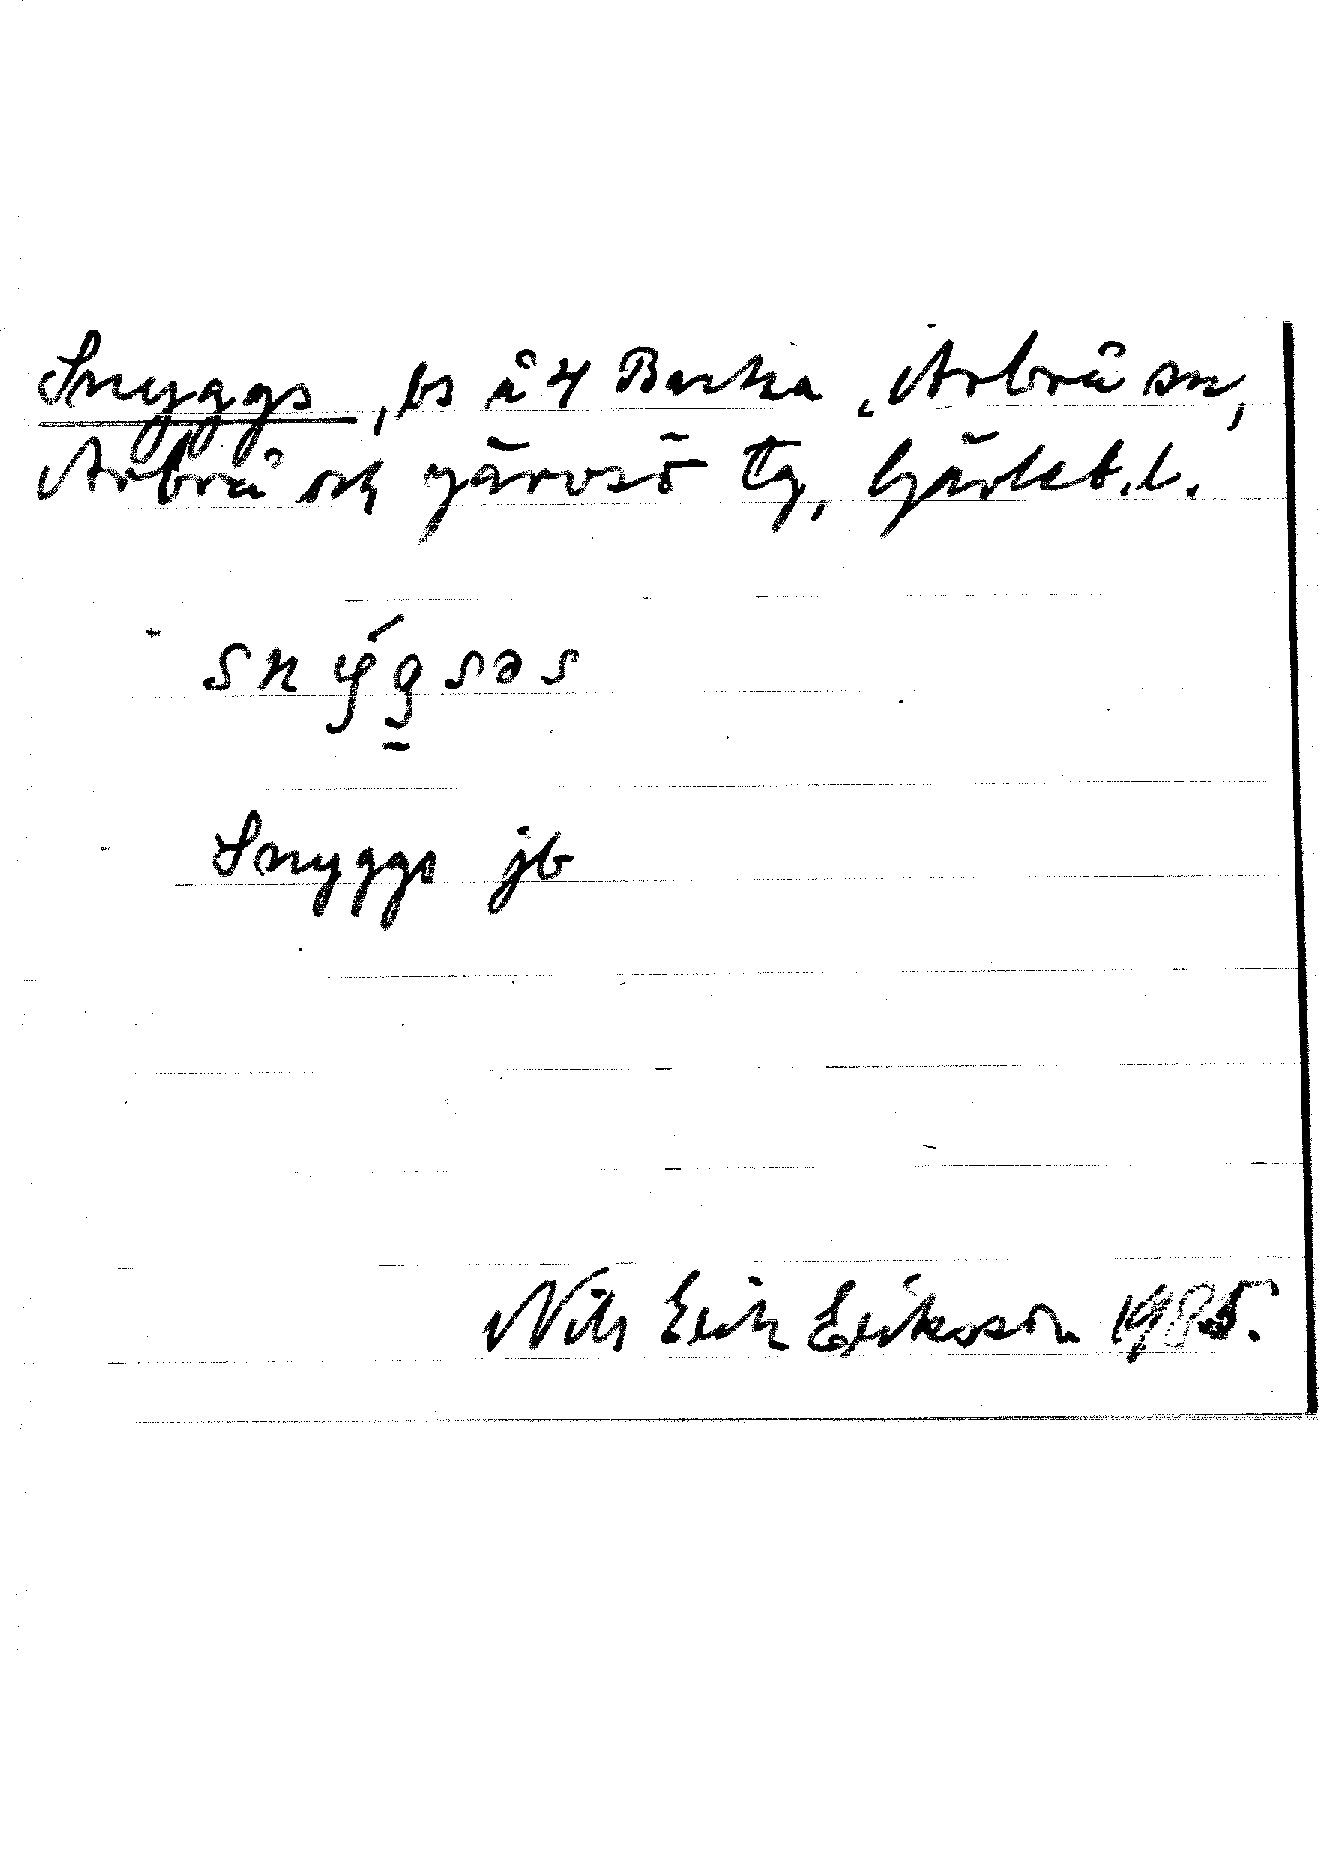 Snyggs, bs å 4 Backa, Arbrå sn,
Arbrå och Järvsö tg, Gävleb. l.
snýgsəs
Snyggs jb
Nils Erik Eriksson 1985.